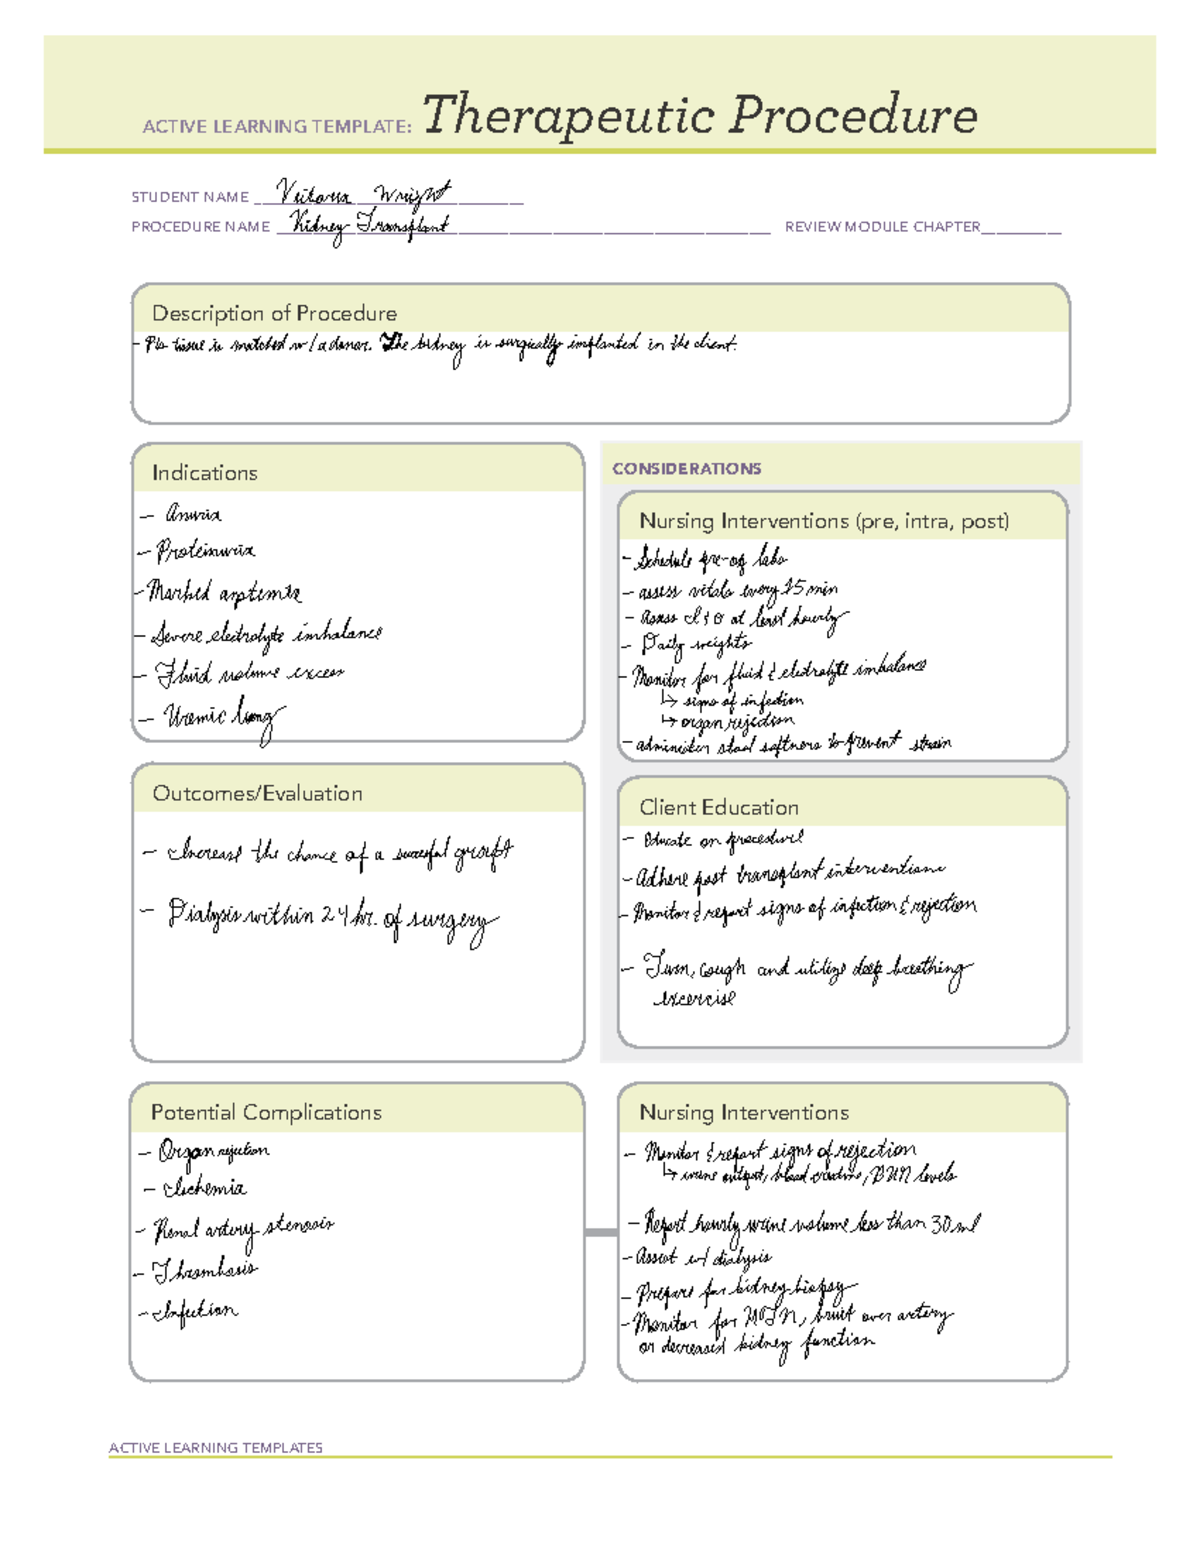 ACTIVE LEARNING TEMPLATE: Therapeutic Procedure
STUDENT NAME Victoria Wright
PROCEDURE NAME Kidney Transplant REVIEW MODULE CHAPTER
Description of Procedure
- Pts tissue is matched w/ a donor. The kidney is surgically implanted in the client.
Indications
- Anuria
- Proteinuria
- Marked azotemia
- Severe electrolyte imbalance
- Fluid volume excess
- Uremic lung
CONSIDERATIONS
Nursing Interventions (pre, intra, post)
- Schedule pre-op labs
- assess vitals every 15 min
- Assess I & O at least hourly
- Daily weights
- Monitor for fluid & electrolyte imbalance
↳ signs of infection
↳ organ rejection
- administer stool softners to prevent strain
Outcomes/Evaluation
- Increase the chance of a successful
- Dialysis within 24 hr. of surgery
Client Education
- Educate on
- Adhere post transplant interventions
- Monitor & report signs of infection & rejection
- Turn, cough and utilize deep breathing
excercise
Potential Complications
- Organ rejection
- Ischemia
- Renal artery stenosis
- Thrombosis
- Infection
Nursing Interventions
- Monitor & report signs of rejection
↳ urine output, blood BUN levels
- Report hourly urine volume less than 30 ml
- Assist w/ dialysis
- Prepare for kidney biopsy
- Monitor for HTN, bruit over artery
or decreased kidney function
ACTIVE LEARNING TEMPLATES